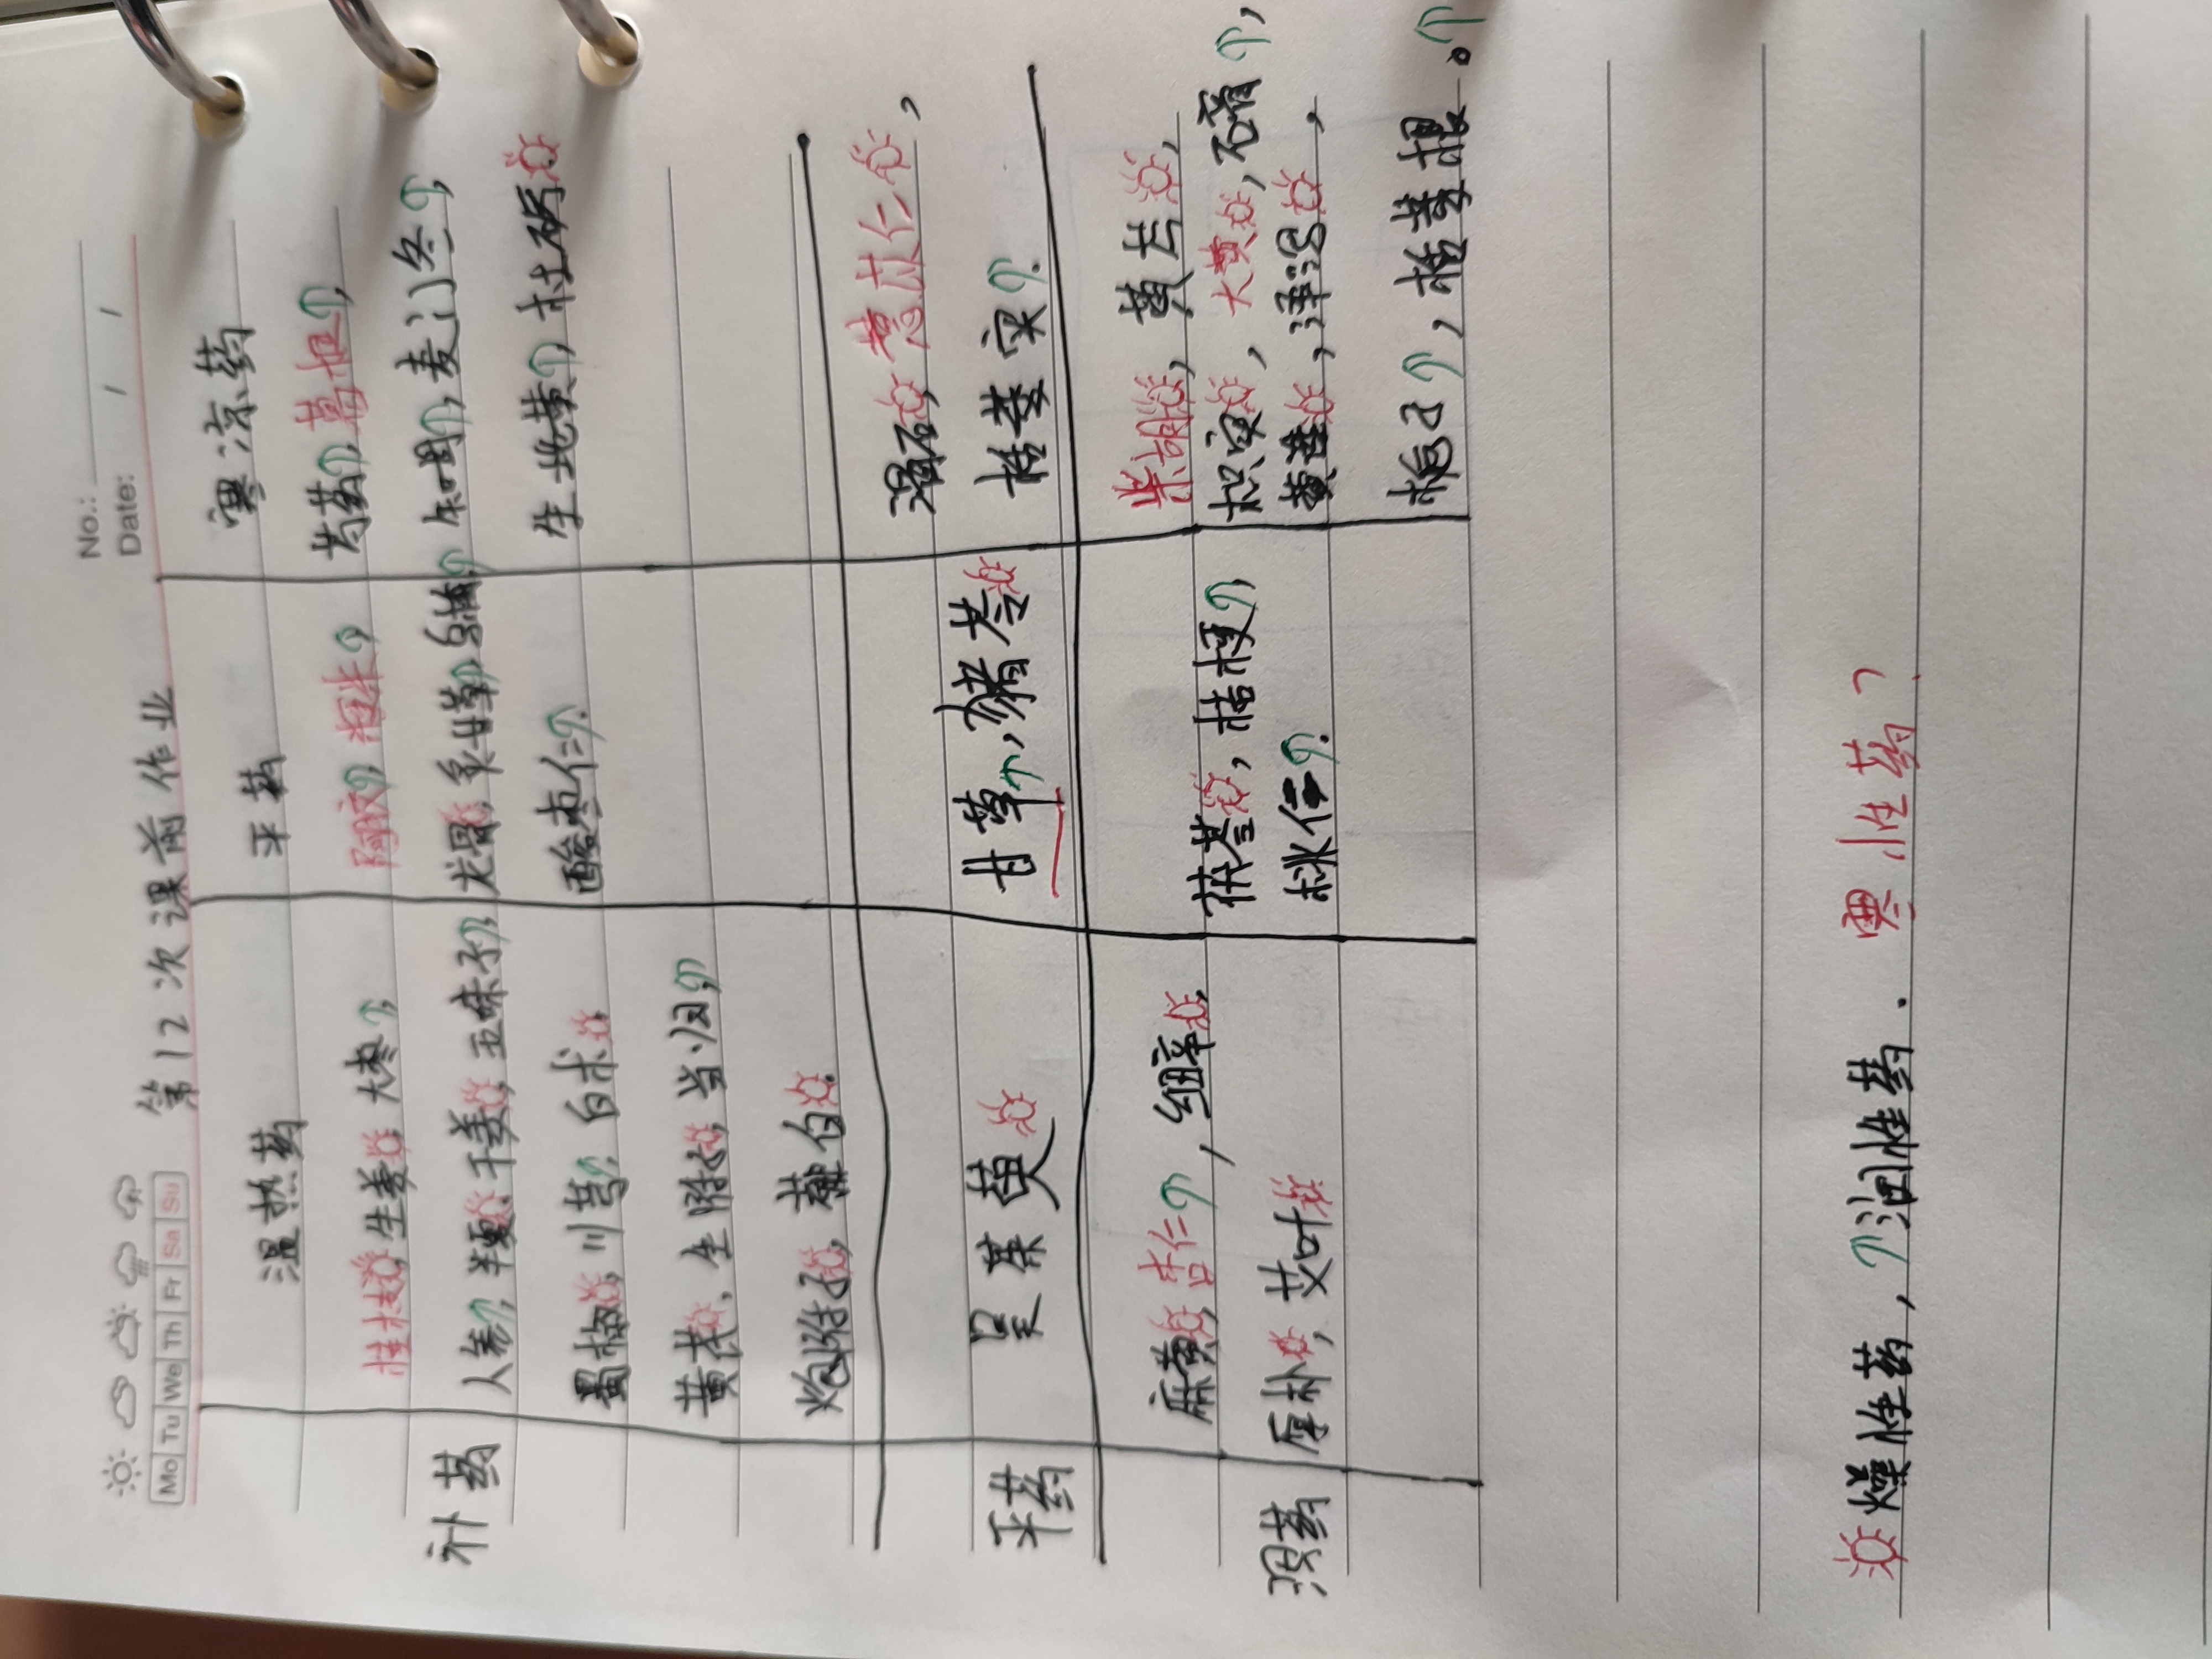 No.:
Date: / /
Mo Tu We Th Fr Sa Su
第12次课前作业
温热药 平药 寒凉药
补药
桂枝, 生姜, 大枣,
人参, 半夏, 干姜, 五味子,
蜀椒, 川芎, 白术,
黄芪, 生附子, 当归,
炮附子, 薤白.
阿胶, 粳米,
龙骨, 炙甘草, 白蜜,
酸枣仁.
芍药, 葛根,
知母, 麦门冬,
生地黄, 牡蛎.
平药
吴茱萸
甘草, 猪苓
滑石, 薏苡仁,
栝蒌实.
泻药
麻黄, 杏仁, 细辛,
厚朴, 艾叶
茯苓, 桔梗,
桃仁.
柴胡, 黄芩,
枳实, 大黄, 石膏,
黄连, 泽泻,
栀子, 栝蒌根.
燥性药, 润性药. 寒性药?